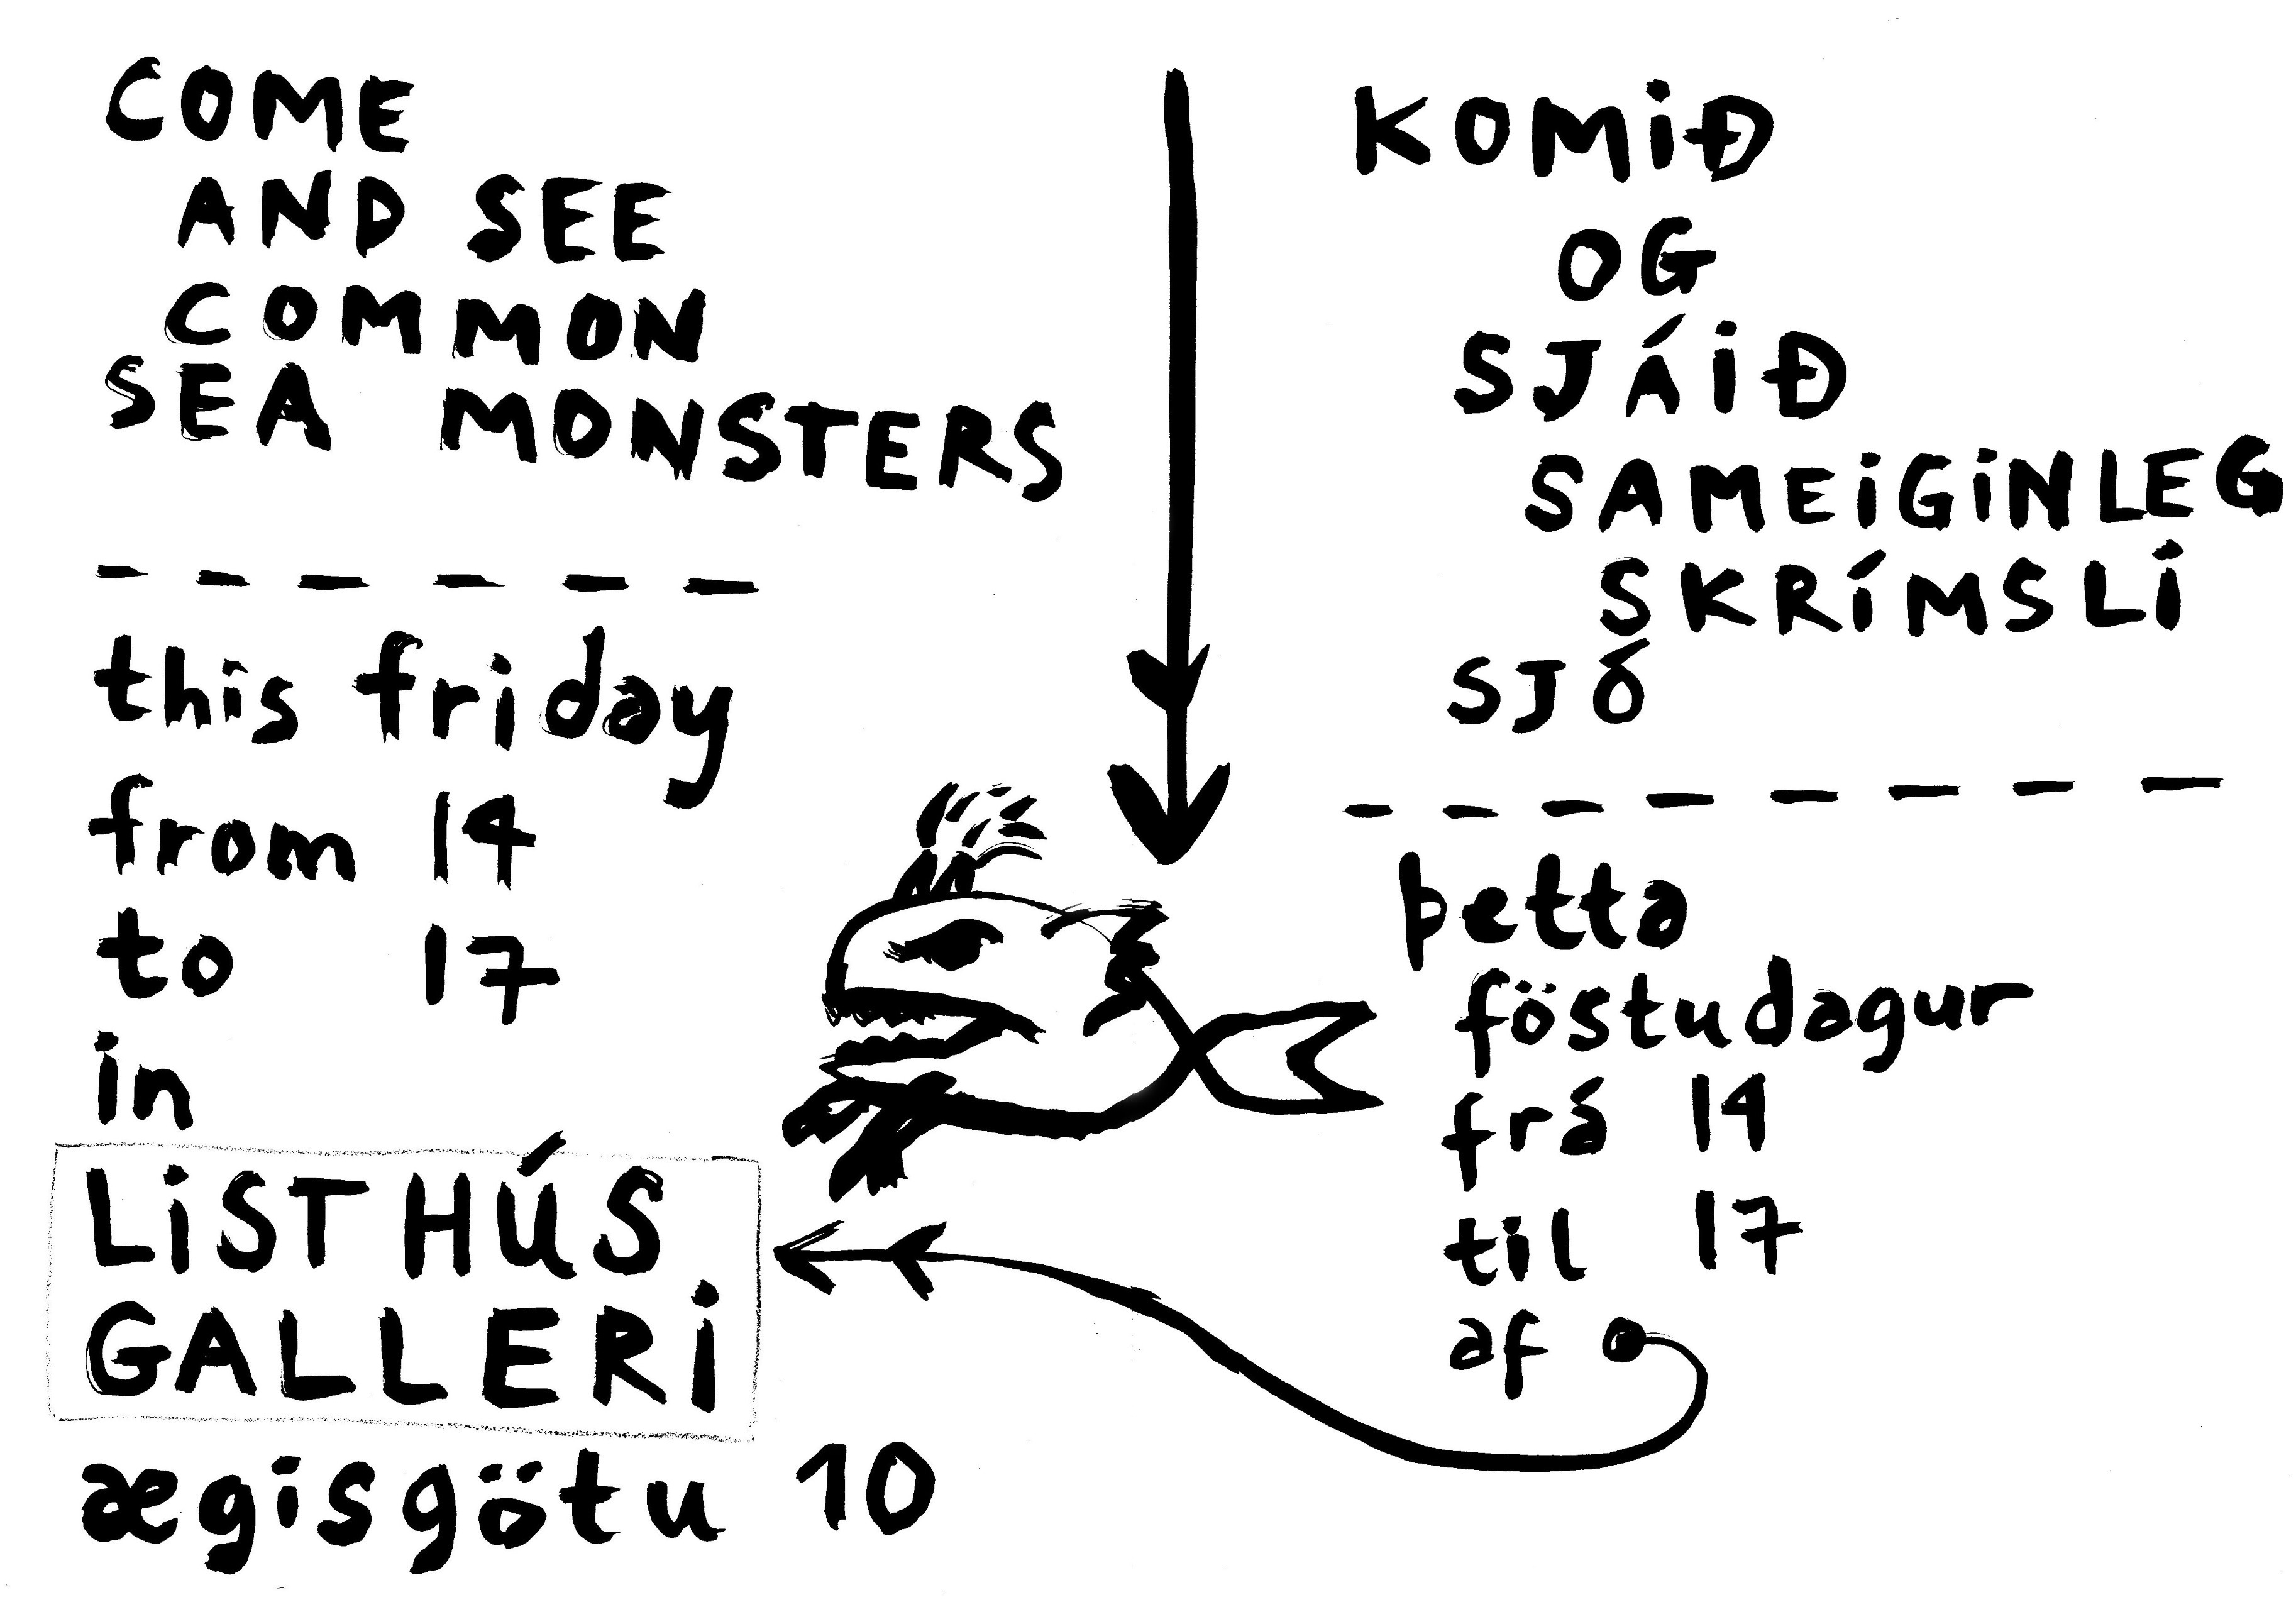 COME
AND SEE
COMMON
SEA MONSTERS
this friday
from 14
to 17
in
LiST HÚS
GALLERi
ægisgötu 10
KOMiÐ
OG
SJÁiÐ
SAMEiGiNLEG
SKRÍMSLi
SJÓ
þetta
föstudagur
frá 14
til 17
af